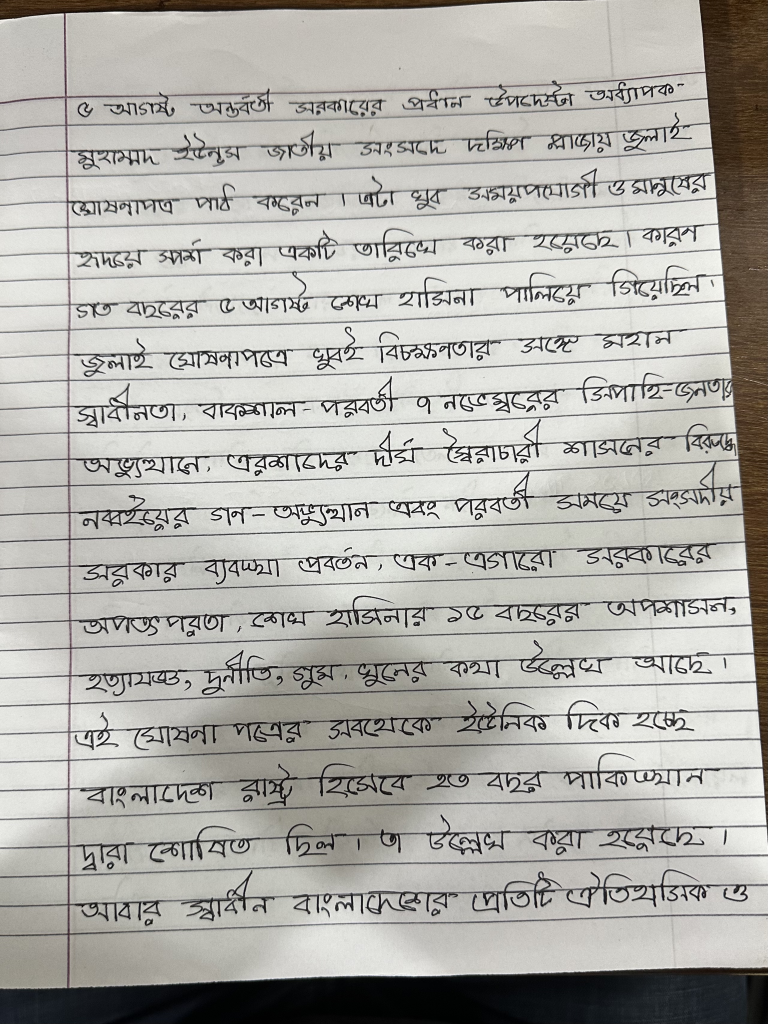 ৫ আগষ্ট অন্তর্বর্তী সরকারের প্রধান উপদেস্টা অধ্যাপক-
মুহাম্মদ ইউনুস জাতীয় সংসদে দক্ষিণ প্লাজায় জুলাই
ঘোষনাপত্র পাঠ করেন। এটা খুব সময়পযোগী ও মানুষের
হৃদয়ে স্পর্শ করা একটি তারিখে করা হয়েছে। কারন
গত বছরের ৫ আগষ্ট শেখ হাসিনা পালিয়ে গিয়েছিল।
জুলাই ঘোষনাপত্রে খুবই বিচক্ষণতার সঙ্গে মহান
স্বাধীনতা, বাকশাল-পরবর্তী ৭ নভেম্বরের সিপাহি-জনতার
অভ্যুত্থানে, এরশাদের দীর্ঘ স্বৈরাচারী শাসনের বিরুদ্ধে
নব্বইয়ের গন-অভ্যুত্থান এবং পরবর্তী সময়ে সংসদীয়
সরকার ব্যবস্থা প্রবর্তন, এক-এগারো সরকারের
অপতৎপরতা, শেখ হাসিনার ১৫ বছরের অপশাসন,
হত্যাযজ্ঞ, দুর্নীতি, গুম, খুনের কথা উল্লেখ আছে।
এই ঘোষনা পত্রের সবথেকে ইউনিক দিক হচ্ছে
বাংলাদেশ রাষ্ট্র হিসেবে ২৩ বছর পাকিস্থান
দ্বারা শোষিত ছিল। তা উল্লেখ করা হয়েছে।
আবার স্বাধীন বাংলাদেশের প্রতিটি ঐতিহাসিক ও